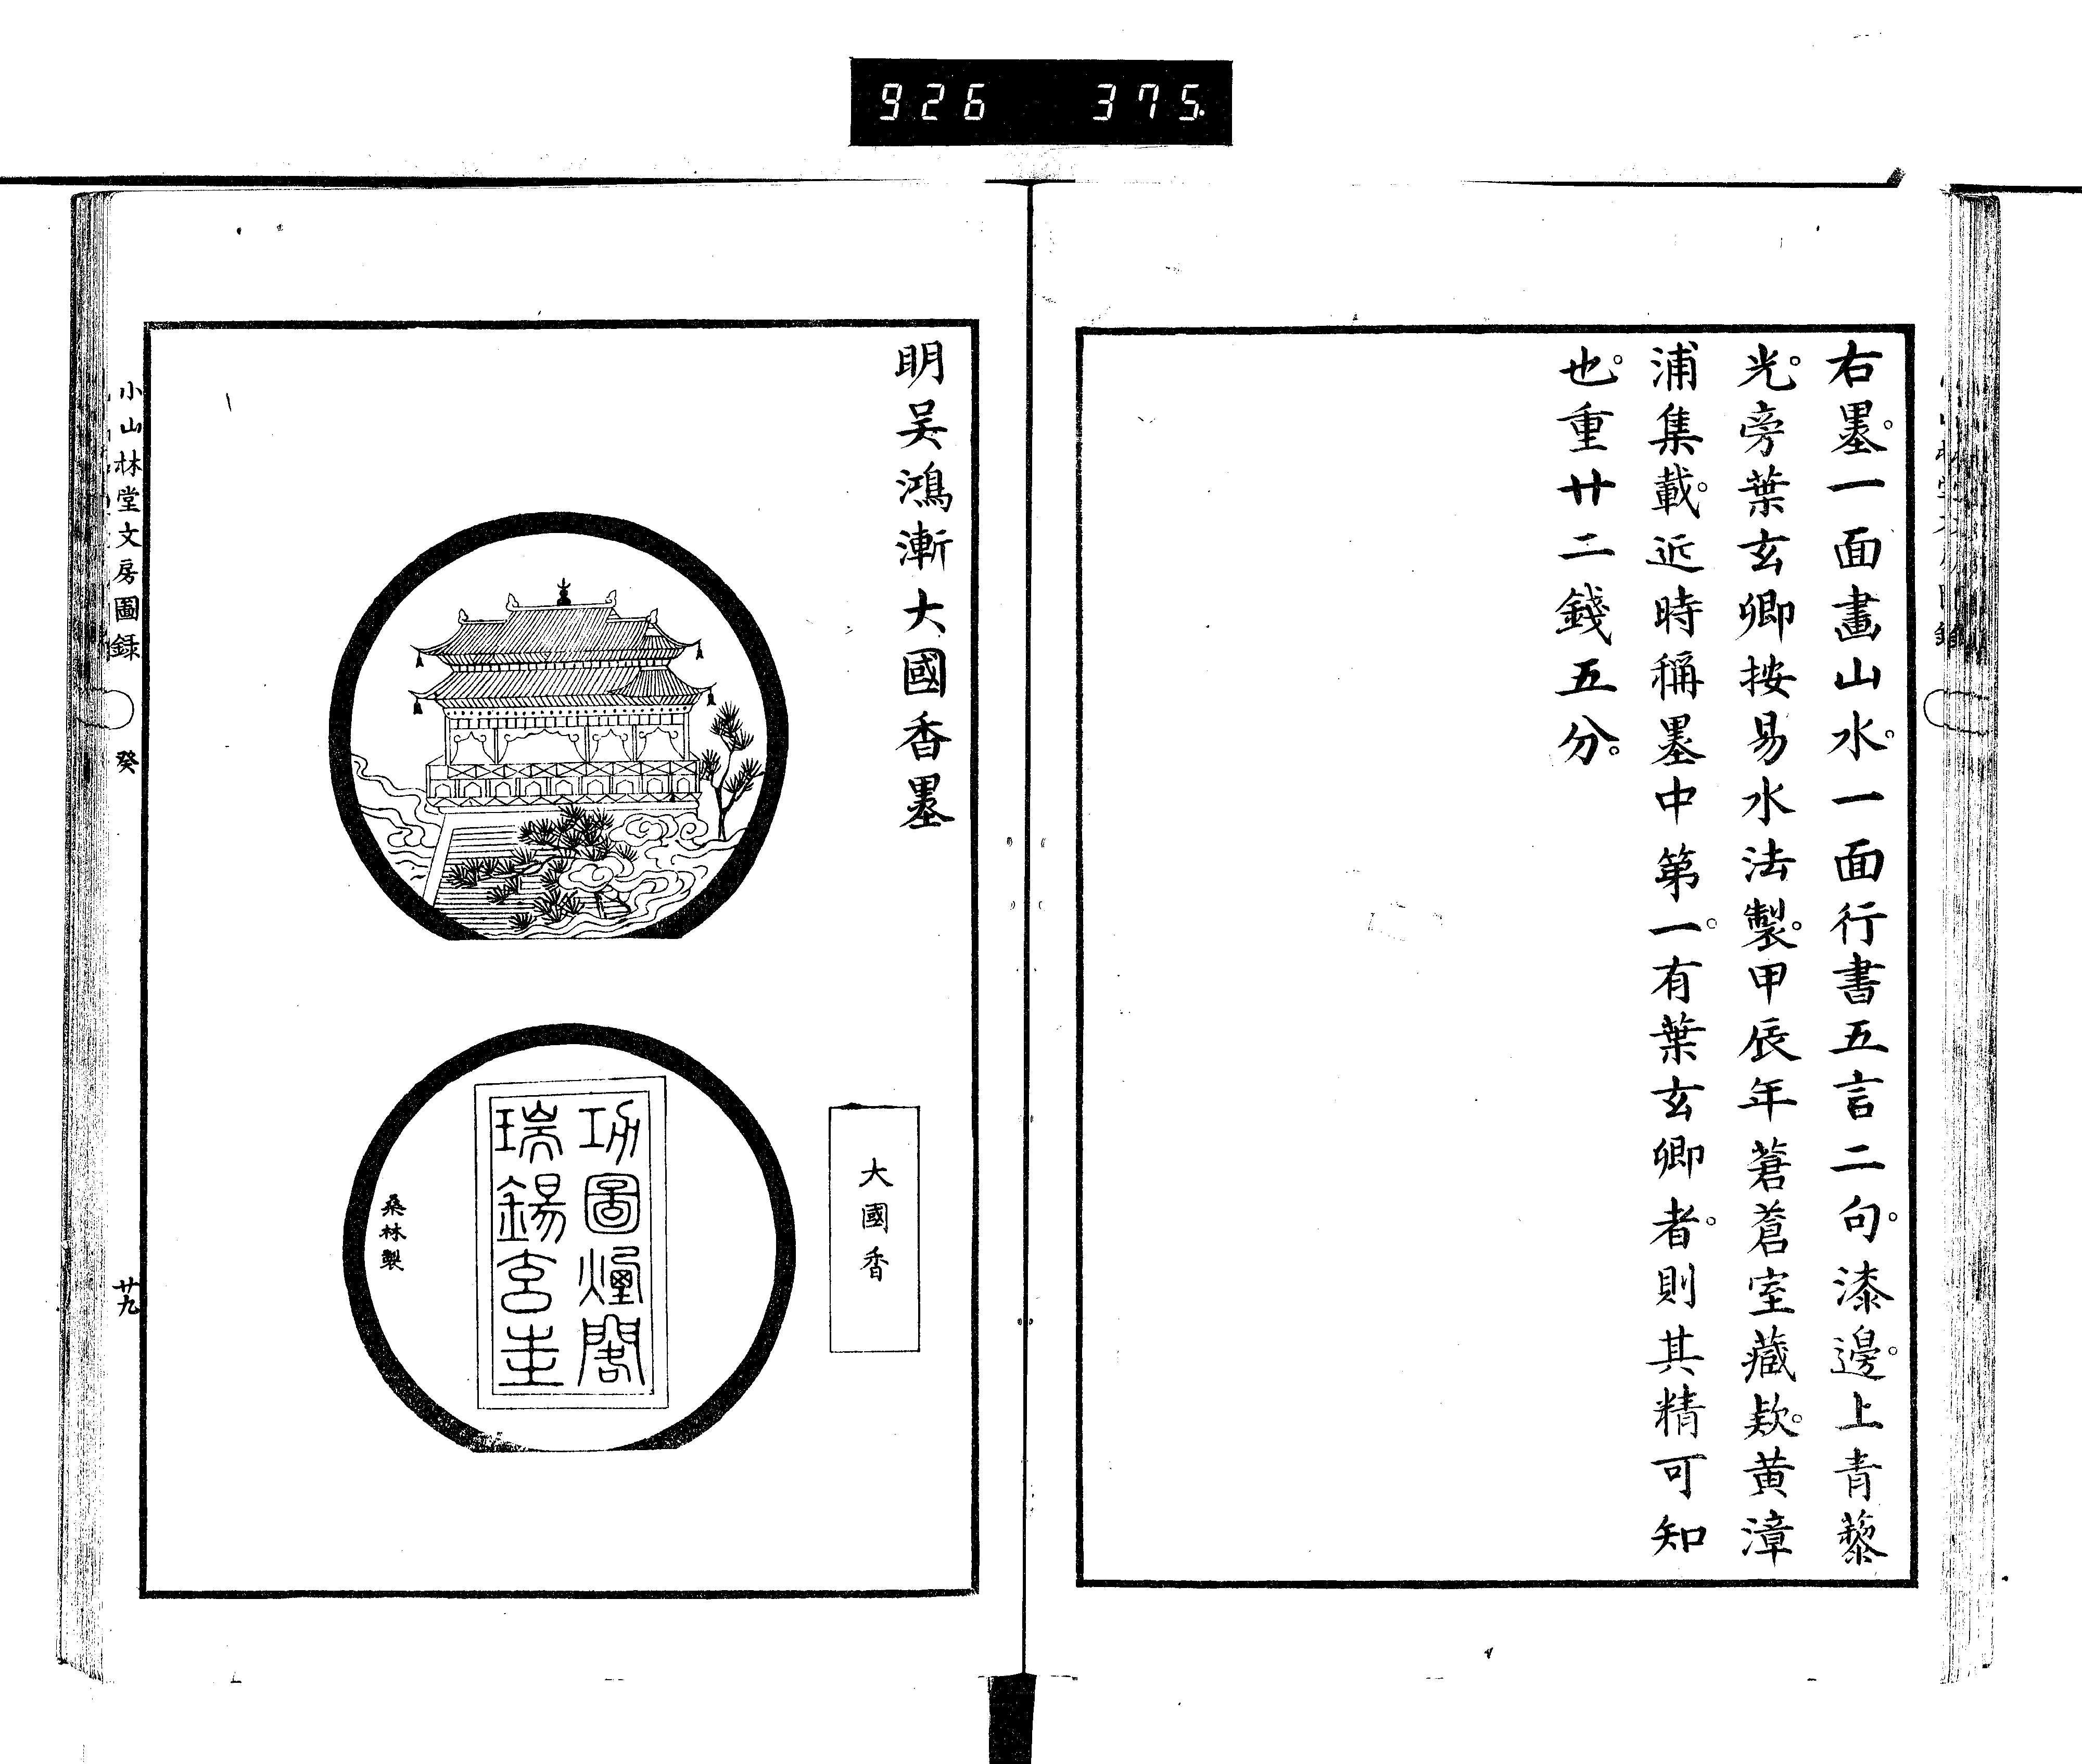 926 375.
右墨。一面畫山水。一面行書五言二句。漆邊。上青藜
光。旁葉玄卿按易水法製。甲辰年蒼蒼室藏款。黄漳
浦集載。近時稱墨中第一。有葉玄卿者。則其精可知
也。重廿二錢五分。
明吴鴻漸大國香墨
大國香
功圖煙閣
瑞錫玄圭
桑林製
小山林堂文房圖録
癸
廿九